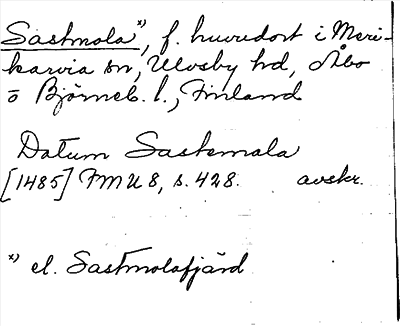 Sastmola*), f. huvudort i Meri-
karvia sn, Ulvsby hd, Åbo
o Björneb. l., Finland
Datum Sastemala
[1485] FMU 8, s. 428. avskr.
*) el. Sastmolafjärd